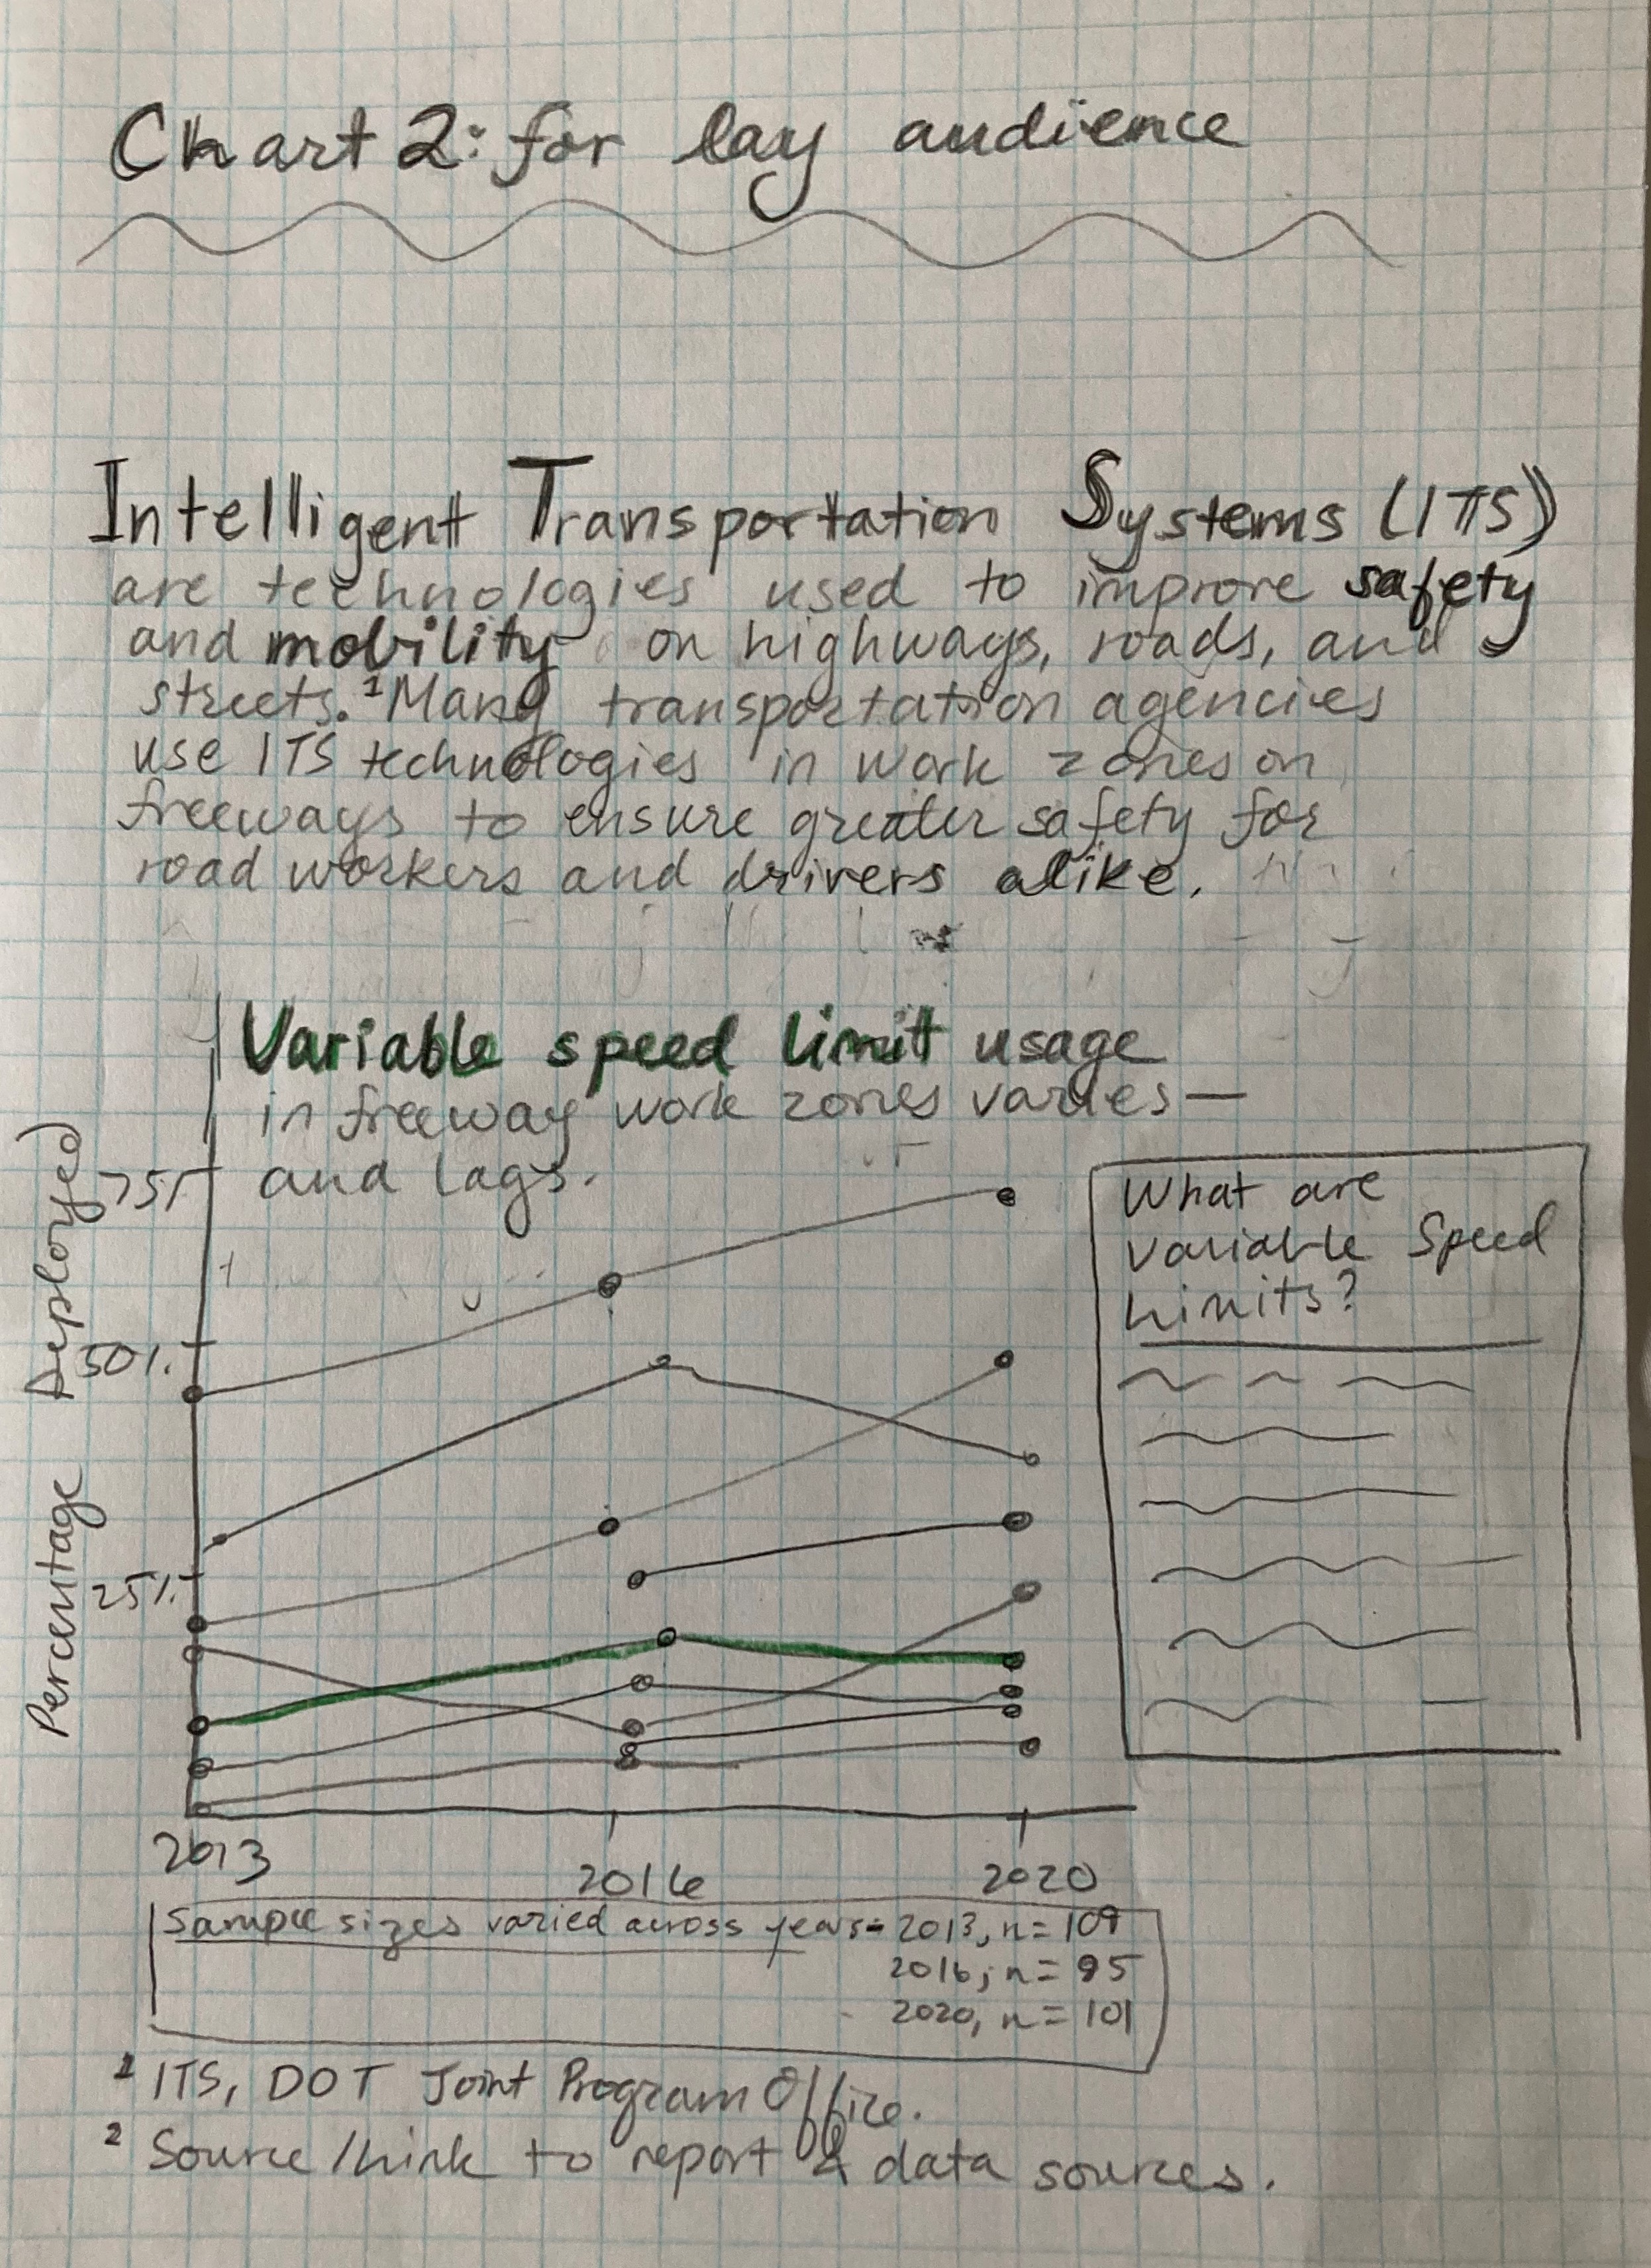 Chart 2: for lay audience
Intelligent Transportation Systems (ITS)
are technologies used to improve safety
and mobility on highways, roads, and
streets.¹ Many transportation agencies
use ITS technologies in work zones on
freeways to ensure greater safety for
road workers and drivers alike.
Variable speed limit usage
in freeway work zones varies—
and lags.
Percentage Deployed
75%
50%
25%
What are
Variable Speed
Limits?
2013
2016
2020
Sample sizes varied across years- 2013, n=109
2016, n=95
2020, n=101
1 ITS, DOT Joint Program Office.
2 Source/Link to report & data sources.